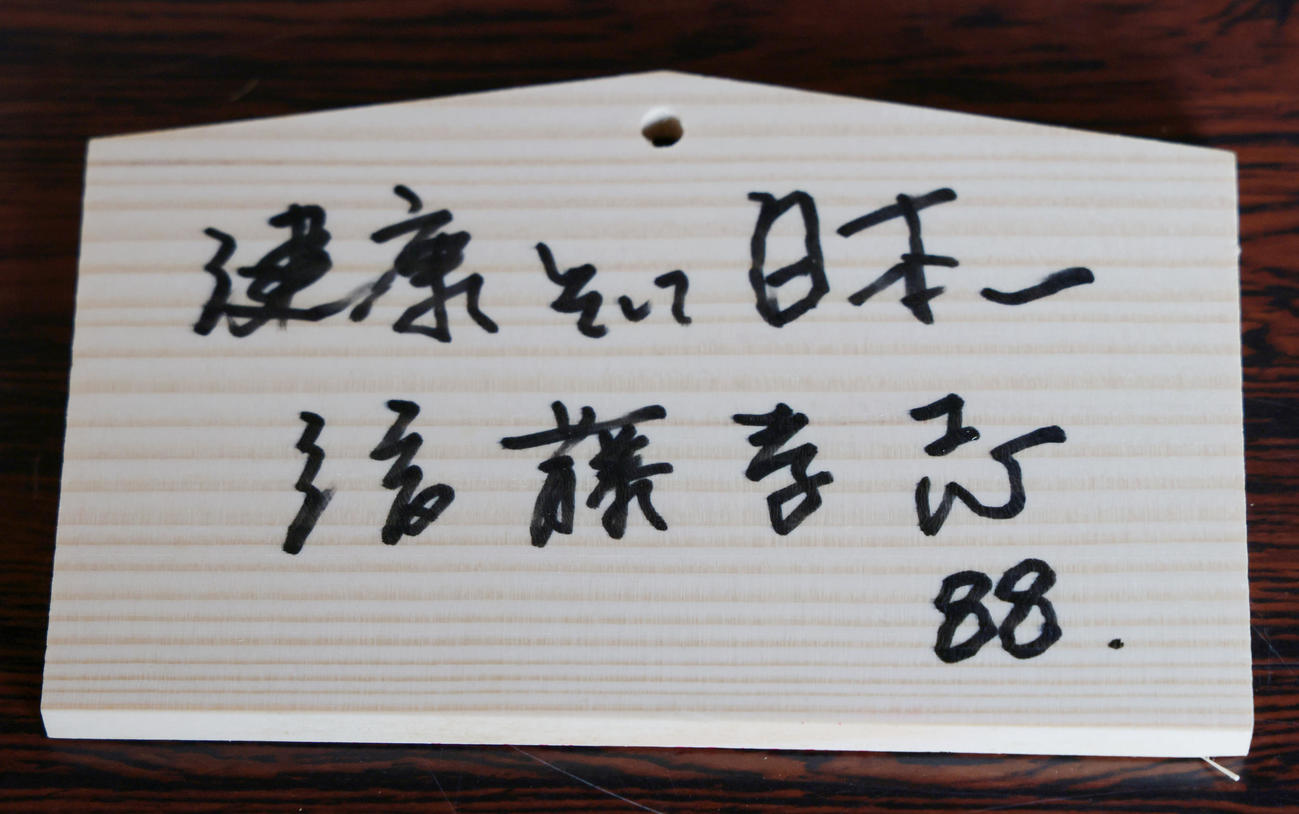 健康そして日本一
後藤孝行
88.